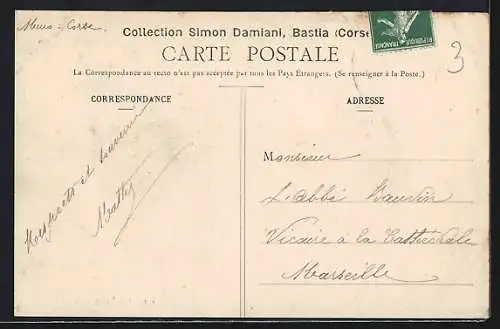 Collection Simon Damiani, Bastia (Corse
CARTE POSTALE
La Correspondance au recto n'est pas acceptée par tous les Pays Etrangers. (Se renseigner à la Poste.)
3
CORRESPONDANCE
Respects et souvenir
ADRESSE
Monsieur
L'abbé
Vicaire à la Cathédrale
Marseille